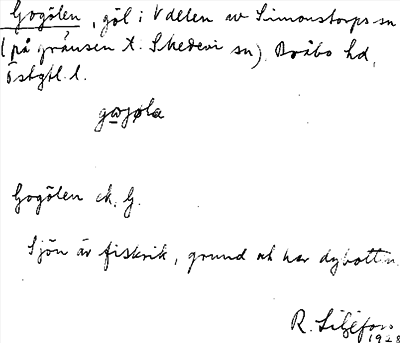 Gogölen, göl i V delen av Simonstorps sn
(på gränsen t. Skedevi sn). Bråbo hd,
Östgtl. l.
gogöla
Gogölen ek. G.
Sjön är fiskrik, grund och har dybotten.
R. Liljefors
1928